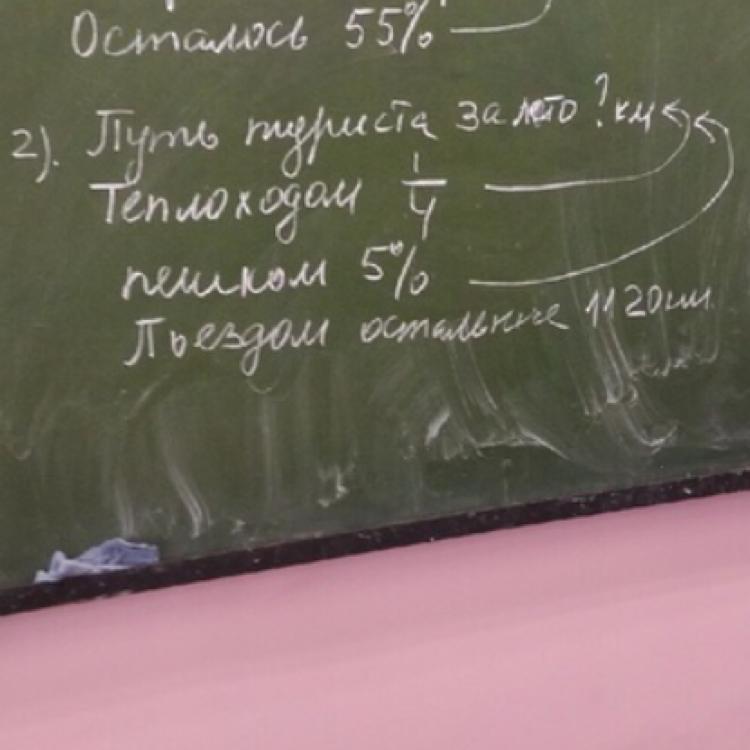 Осталось 55%
2). Путь туриста за лето ? км
Теплоходом 1/4
пешком 5%
Поездом остальные 1120 км